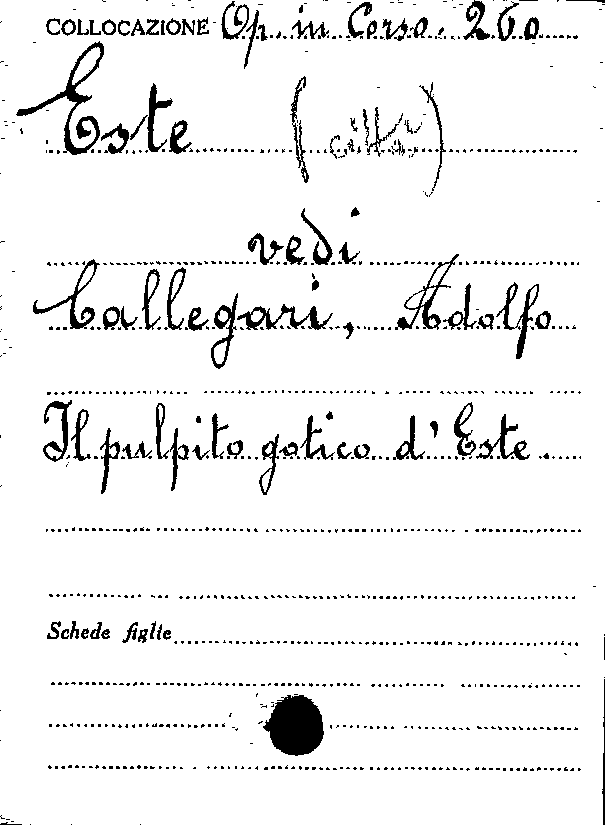 COLLOCAZIONE Op. in Corso. 260
Este (città)
vedi
Callegari, Adolfo
Il pulpito gotico d'Este.
Schede figlie